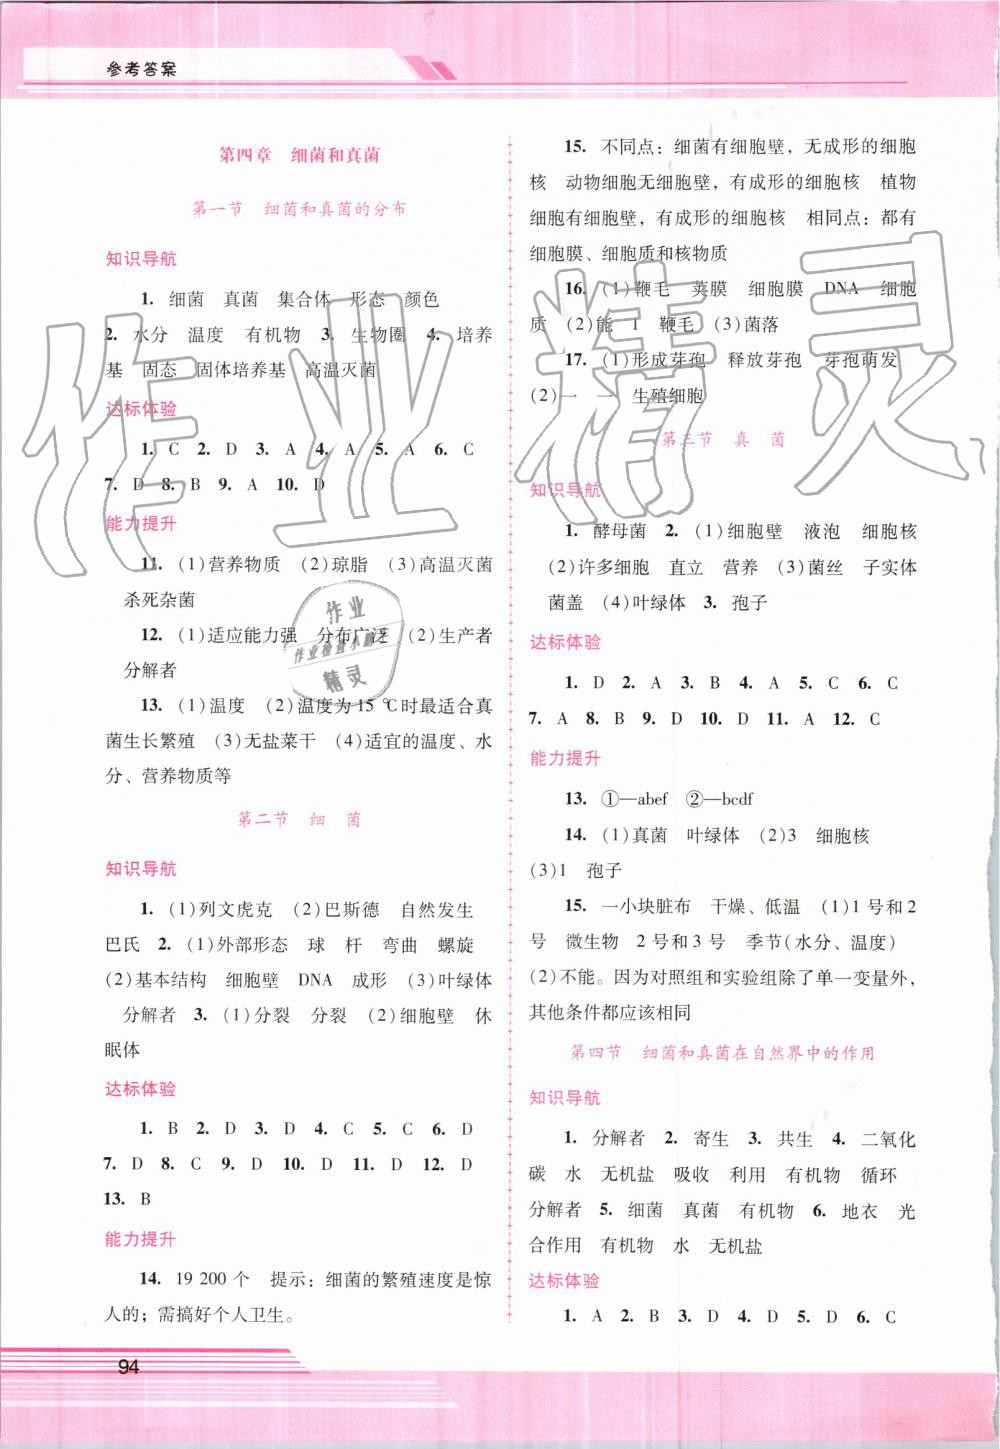 参考答案
第四章　细菌和真菌
第一节　细菌和真菌的分布
知识导航
1. 细菌　真菌　集合体　形态　颜色
2. 水分　温度　有机物 3. 生物圈 4. 培养
基　固态　固体培养基　高温灭菌
达标体验
1. C 2. D 3. A 4. A 5. A 6. C
7. D 8. B 9. A 10. D
能力提升
11. (1)营养物质　(2)琼脂　(3)高温灭菌
杀死杂菌
12. (1)适应能力强　分布广泛　(2)生产者
分解者
13. (1)温度　(2)温度为 15 ℃时最适合真
菌生长繁殖　(3)无盐菜干　(4)适宜的温度、水
分、营养物质等
第二节　细　菌
知识导航
1. (1)列文虎克　(2)巴斯德　自然发生
巴氏 2. (1)外部形态　球　杆　弯曲　螺旋
(2)基本结构　细胞壁　DNA　成形　(3)叶绿体
分解者 3. (1)分裂　分裂　(2)细胞壁　休
眠体
达标体验
1. B 2. D 3. D 4. C 5. C 6. D
7. D 8. C 9. D 10. D 11. D 12. D
13. B
能力提升
14. 19 200 个　提示：细菌的繁殖速度是惊
人的；需搞好个人卫生。
94
15. 不同点：细菌有细胞壁，无成形的细胞
核　动物细胞无细胞壁，有成形的细胞核　植物
细胞有细胞壁，有成形的细胞核　相同点：都有
细胞膜、细胞质和核物质
16. (1)鞭毛　荚膜　细胞膜　DNA　细胞
质　(2)能　1　鞭毛　(3)菌落
17. (1)形成芽孢　释放芽孢　芽孢萌发
(2)一　一　生殖细胞
第三节　真　菌
知识导航
1. 酵母菌 2. (1)细胞壁　液泡　细胞核
(2)许多细胞　直立　营养　(3)菌丝　子实体
菌盖　(4)叶绿体 3. 孢子
达标体验
1. D 2. A 3. B 4. A 5. C 6. C
7. A 8. B 9. D 10. D 11. A 12. C
能力提升
13. ①—abef　②—bcdf
14. (1)真菌　叶绿体　(2)3　细胞核
(3)1　孢子
15. 一小块脏布　干燥、低温　(1)1 号和 2
号　微生物　2 号和 3 号　季节(水分、温度)
(2)不能。因为对照组和实验组除了单一变量外，
其他条件都应该相同
第四节　细菌和真菌在自然界中的作用
知识导航
1. 分解者 2. 寄生 3. 共生 4. 二氧化
碳　水　无机盐　吸收　利用　有机物　循环
分解者 5. 细菌　真菌　有机物 6. 地衣　光
合作用　有机物　水　无机盐
达标体验
1. A 2. B 3. D 4. D 5. D 6. C
作业精灵
作业
作业检查小
精灵